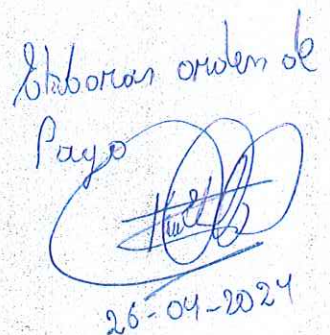 Elaborar orden de
Pago
26-04-2024